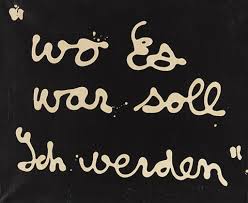 wo Es
war soll
"Ich werden"